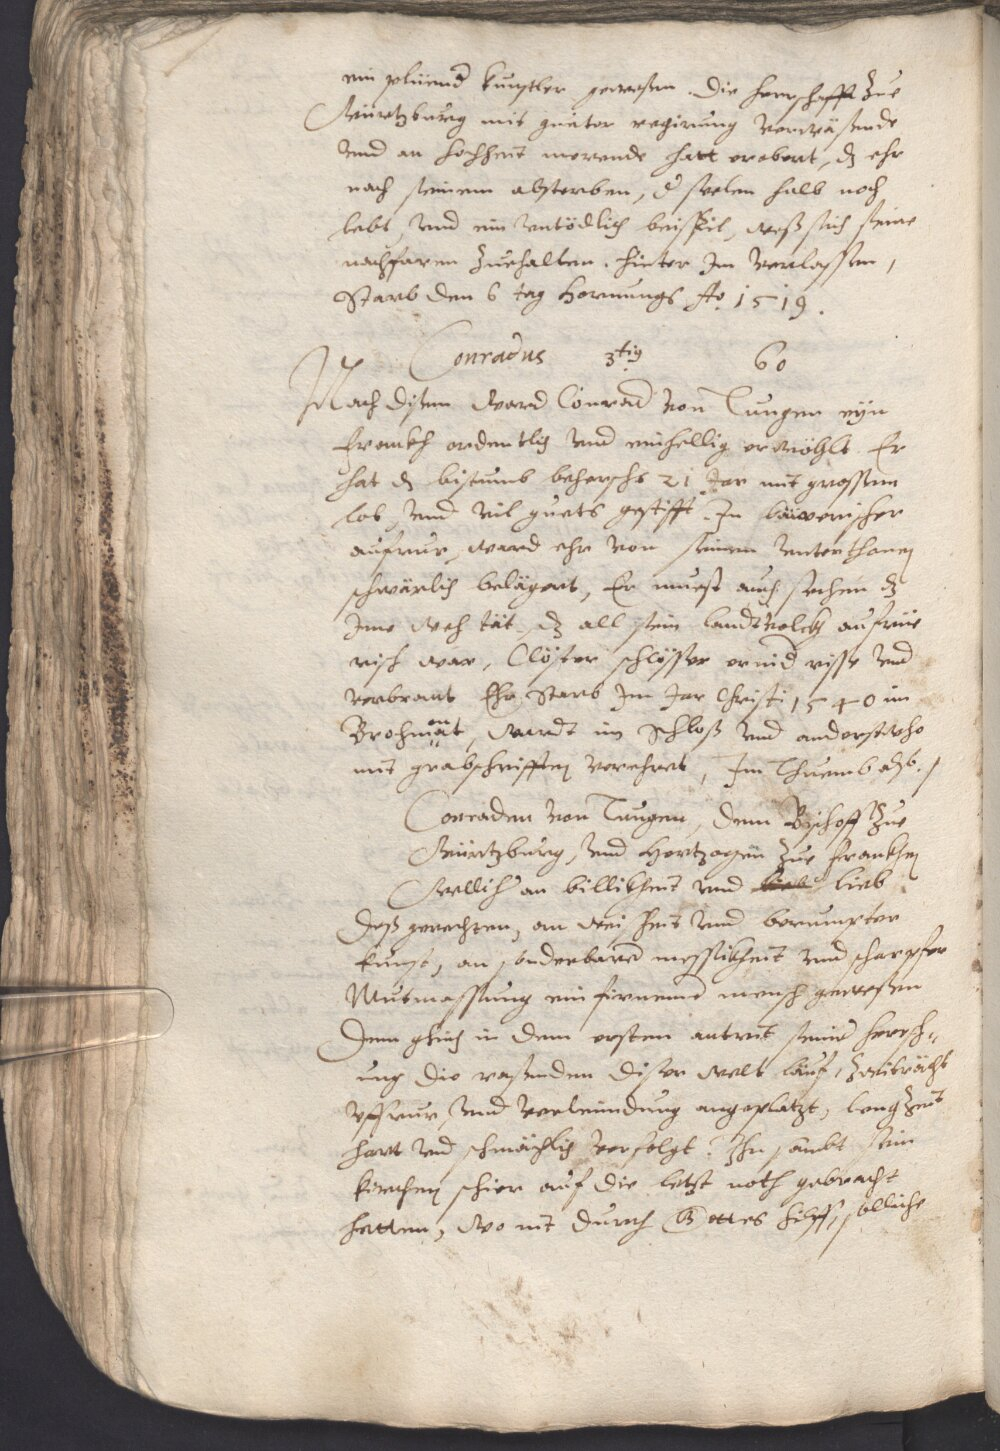 ein plüend kunstler gewesen. Die herrschafft zue
Würtzburg mit gueter regirung verwäsende
und an hochheit merende hatt erobert, dz ehr
nach seinem absterben, d seelen halb noch
lebt, und ein untödlich beispil, weß sich seine
nachfaren zuehalten hinter Im verlassen,
Starb den 6 tag Hornungs Ao. 1519.
Conradus 3tig 60
Nach disem ward Conrad von Tungen eyn
frankh ordentlich und einhellig erwöhlt. Er
hat dz bistumb behersche 21 Jar mit grossem
lob, und vil guets gestifft. In bäwerischer
aufrur, ward ehr von seinen unterthanen
schwärlich belägert, Er muest auch sehen dz
Ime weh tät, dz all sein landtvolckh aufrüe
risch war, Clöster schlösser ernid risse und
verbrant Ehr Starb Im Jar Christi 1540 im
Brohmonat, wardt im Schloß und anderstwho
mit grabschrifften verehret, Im Thuemb also.
Conraden von Tungen, dem Bischoff zue
Würtzburg, und Hertzogen zue frankhen
Wellich an billikheit und lieb
deß gerechten, an weisheit und berumpter
kunst, an sonderbarer messikheit und scharpfer
Mutmassung ein firnemer mensch gewesen
Dem gleich in dem ersten antrit seiner hersch-
ung die rasenden diser welt läuf, zwiträcht
Uffrur, und verleindung angeplatzt, lang Zeit
hart und schmächlich verfolgt. Ihn sambt sein
kirchen schier auf die letst noth gebracht
hatten, wo nit durch Gottes hilff, solliche